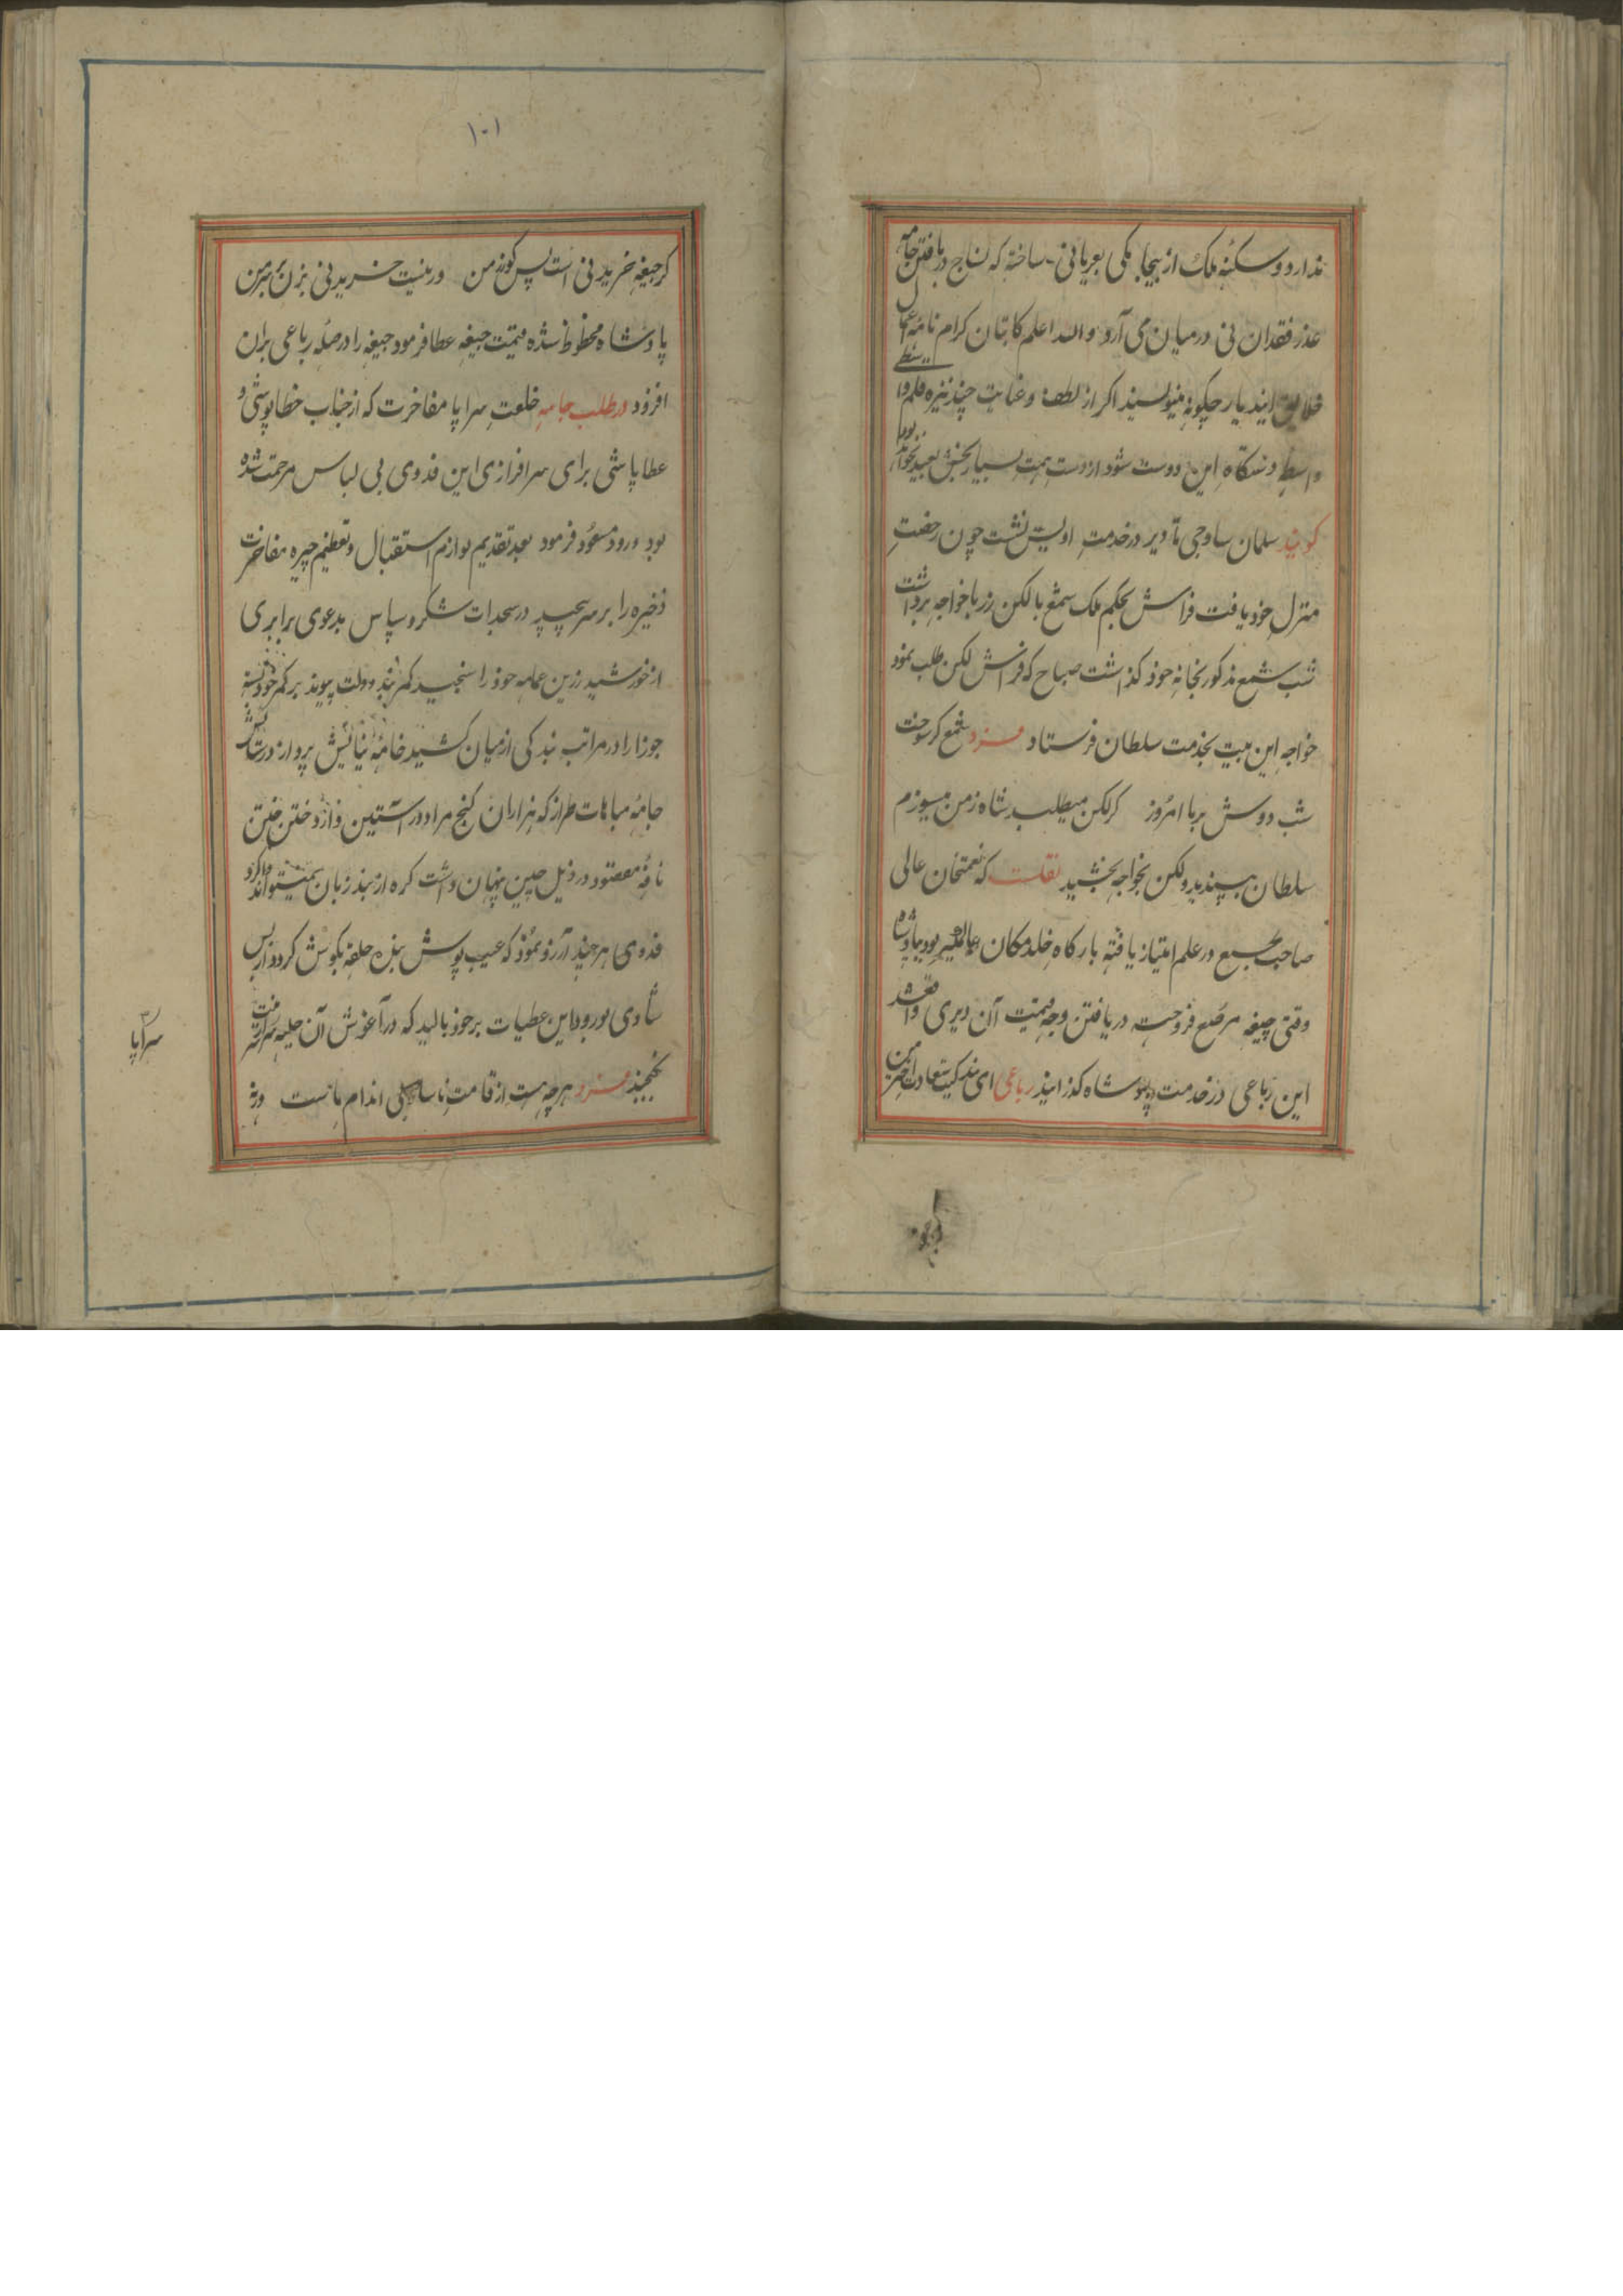 ندارد و سکنهٔ ملک از بیجامگی بعریانی ساخته که نساج در بافتن جامه
عذر فقدان نی در میان می آرد والله اعلم کاتبان کرام نامهٔ اعمال
خلایق ایند یار چگونه مینویسند اگر از لطف و عنایت چند نیزه قلم واسطی
واسطه دستگاه این دوست شود از دست همت بسیار بخش بعید نخواهد بود
گویند سلمان ساوجی تا دیر در خدمت اویس نشست چون رخصت
منزل خود یافت فراش بحکم ملک شمع با لگن زر با خواجه برداشت
شب شمع مذکور بخانه خود گذاشت صباح که فراش لگن طلب نمود
خواجه این بیت بخدمت سلطان فرستاد فرد شمع گر سوخت
شب دوش بر پا امروز گر لگن میطلبد شاه ز من میسوزم
سلطان پسندید و لگن بخواجه بخشید نقلست که نعمتخان عالی
صاحب طبع در علم امتیاز یافته بارگاه خلد مکان عالمگیر بود بپادشاه
وقتی جیغه مرصع فروخت در یافتن وجه قیمت آن دیری واقع شد
این رباعی در خدمت پادشاه گذرانید رباعی ای بندگیت سعادت اختر من
۱۰۱
گر جیغه خریدنی است پس کو زر من ور نیست خریدنی بزن بر سر من
پادشاه محظوظ شده قیمت جیغه عطا فرمود جیغه را در صله رباعی بران
افزود در طلب جامه خلعت سراپا مفاخرت که از جناب خطاپوشی و
عطاپاشی برای سرافرازی این فدوی بی لباس مرحمت شده
بود ورود مسعود فرمود بعد تقدیم لوازم استقبال و تعظیم چیره مفاخرت
ذخیره را بر سر پیچید در سجدات شکر و سپاس بدعوی برابری
از خورشید زرین عمامه خود را سنجید کمربند دولت پیوند بر کمر خود بسته
جوزا را در مراتب بندگی از میان کشید خامهٔ نیایش پرواز در ستایش
جامهٔ مباهات طراز که هزاران گنج مراد در آستین و از دوختن ختن
نافهٔ مقصود در ذیل چین پنهان داشت گره از بند زبان نمیتواند وا کرد
فدوی هر چند آرزو نمود که عیب پوش بنده حلقه بگوش گردد از بس
شادی بورود این عطیات بر خود بالید که در آغوش آن حلیه شرافت
نگنجید فرد هر چه هست از قامت ناساز بی اندام ماست ورنه
سراپا